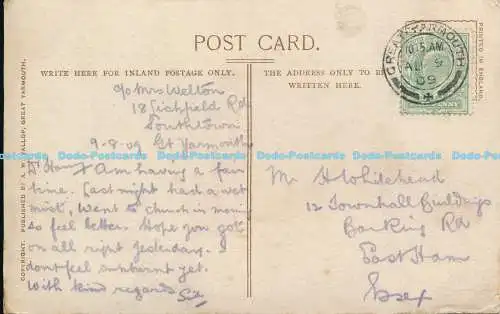 POST CARD.
WRITE HERE FOR INLAND POSTAGE ONLY.
THE ADDRESS ONLY TO BE
WRITTEN HERE.
PRINTED IN ENGLAND.
GREAT YARMOUTH
10.15 AM
AU 9
09
PENNY
c/o Mrs Welton
18 Lichfield Rd
Southtown
9-8-09 Gt Yarmouth
Dr Harry I Am having a fair
time. Last night had a wet
mist, went to church in morning
so feel better. Hope you got
on all right yesterday. I
dont feel sunburnt yet.
With kind regards
Mr H Whitehead
12 Townhall Buildings
Barking Rd
East Ham
Essex
COPYRIGHT. PUBLISHED BY A. YALLOP, GREAT YARMOUTH.
Dodo-Postcards Dodo-Postcards Dodo-Postcards Dodo-Postcards Dodo-Postcards